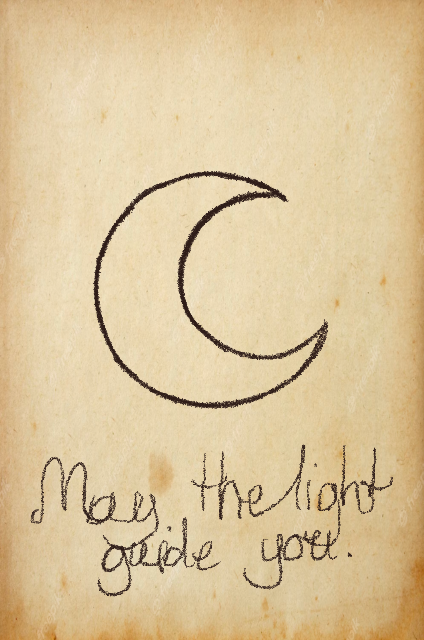 May the light
guide you.